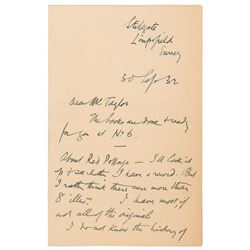 Limpsfield
Surrey
30 Sept 32
Dear Mr. Taylor
The books are done & ready
for you at No 6.
About Red Pottage — I'll look it
up & see but I have a record. But
I rather think there were more than
8 illus. I have most if
not all of the original
I do not know the history of